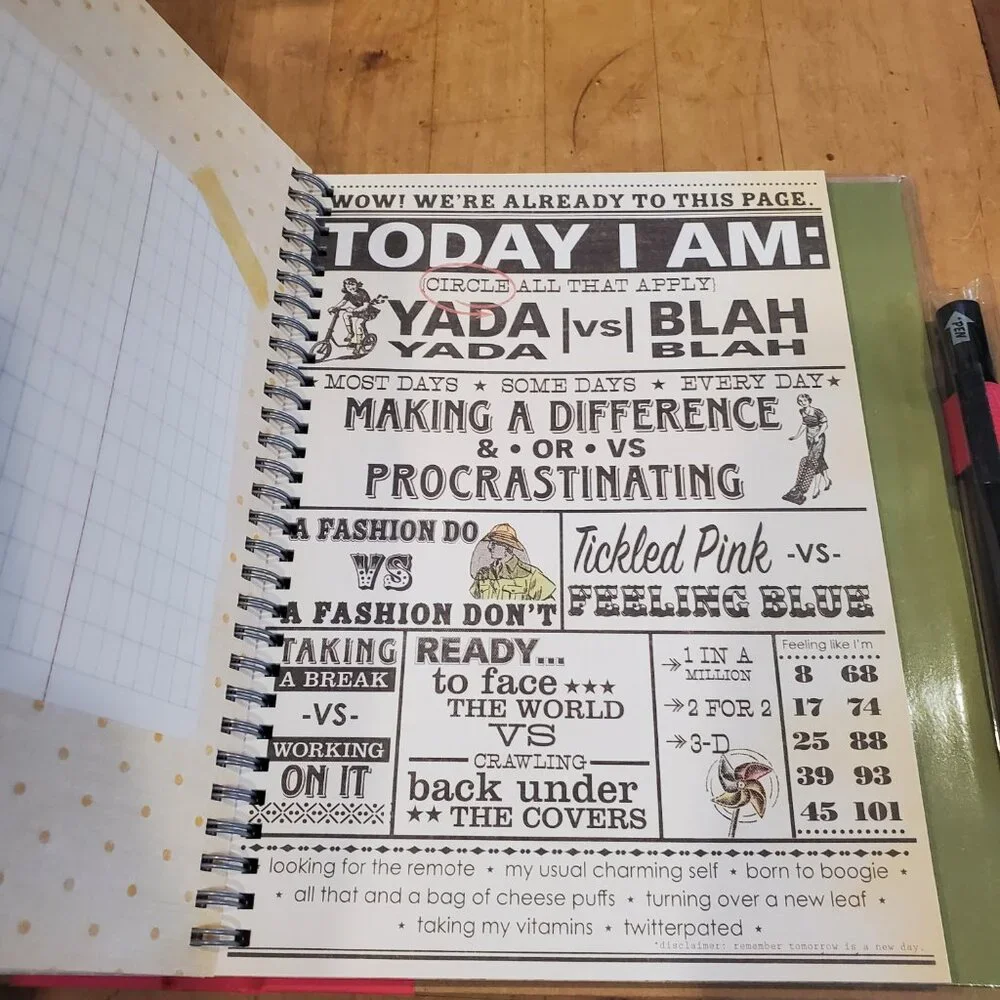 WOW! WE'RE ALREADY TO THIS PAGE.
TODAY I AM:
{CIRCLE ALL THAT APPLY}
YADA |vs| BLAH
YADA BLAH
MOST DAYS ★ SOME DAYS ★ EVERY DAY★
MAKING A DIFFERENCE
& • OR • VS
PROCRASTINATING
A FASHION DO
VS
A FASHION DON'T
Tickled Pink -VS-
FEELING BLUE
TAKING
A BREAK
-VS-
WORKING
ON IT
READY...
to face ★★★
THE WORLD
VS
CRAWLING
back under
★★ THE COVERS
1 IN A
MILLION
2 FOR 2
3-D
Feeling like I'm
8 68
17 74
25 88
39 93
45 101
looking for the remote ★ my usual charming self ★ born to boogie ★
★ all that and a bag of cheese puffs ★ turning over a new leaf ★
★ taking my vitamins ★ twitterpated ★
*disclaimer: remember tomorrow is a new day.
PEN